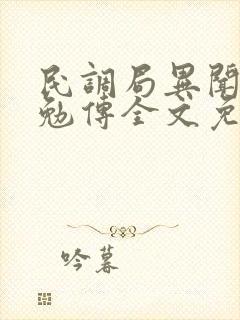 民調局異聞
勉傳全文免
吟暮